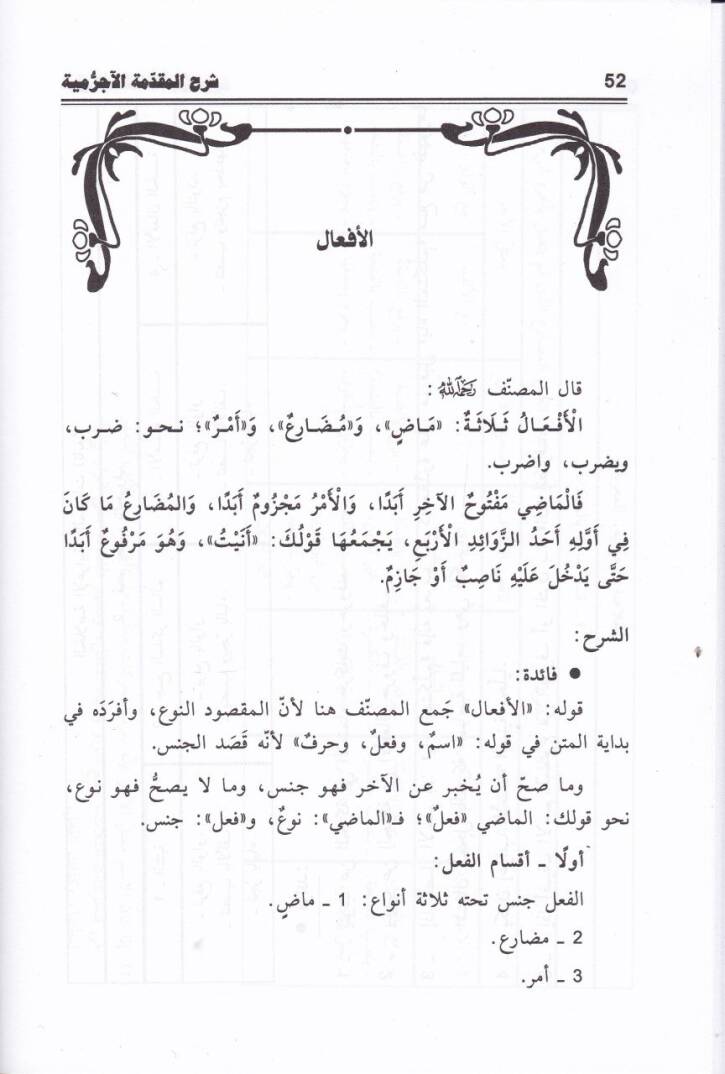 52
شرح المقدّمة الآجرُّمية
الأفعال
قال المصنّف رَحِمَهُ اللَّهُ:
الْأَفْعَالُ ثَلَاثَةٌ: «مَاضٍ»، وَ«مُضَارِعٌ»، وَ«أَمْرٌ»؛ نحو: ضرب،
ويضرب، واضرب.
فَالْمَاضِي مَفْتُوحُ الآخِرِ أَبَدًا، وَالْأَمْرُ مَجْزُومٌ أَبَدًا، وَالْمُضَارِعُ مَا كَانَ
فِي أَوَّلِهِ أَحَدُ الزَّوَائِدِ الْأَرْبَعِ، يَجْمَعُهَا قَوْلُكَ: «أَنَيْتُ»، وَهُوَ مَرْفُوعٌ أَبَدًا
حَتَّى يَدْخُلَ عَلَيْهِ نَاصِبٌ أَوْ جَازِمٌ.
الشرح:
• فائدة:
قوله: «الأفعال» جَمع المصنّف هنا لأنّ المقصود النوع، وأفرَدَه في
بداية المتن في قوله: «اسمٌ، وفعلٌ، وحرفٌ» لأنّه قَصَد الجنس.
وما صحّ أن يُخبر عن الآخر فهو جنس، وما لا يصحُّ فهو نوع،
نحو قولك: الماضي «فعلٌ»؛ فـ«الماضي»: نوعٌ، و«فعل»: جنس.
أولًا ـ أقسام الفعل:
الفعل جنس تحته ثلاثة أنواع: 1 ـ ماضٍ.
2 ـ مضارع.
3 ـ أمر.